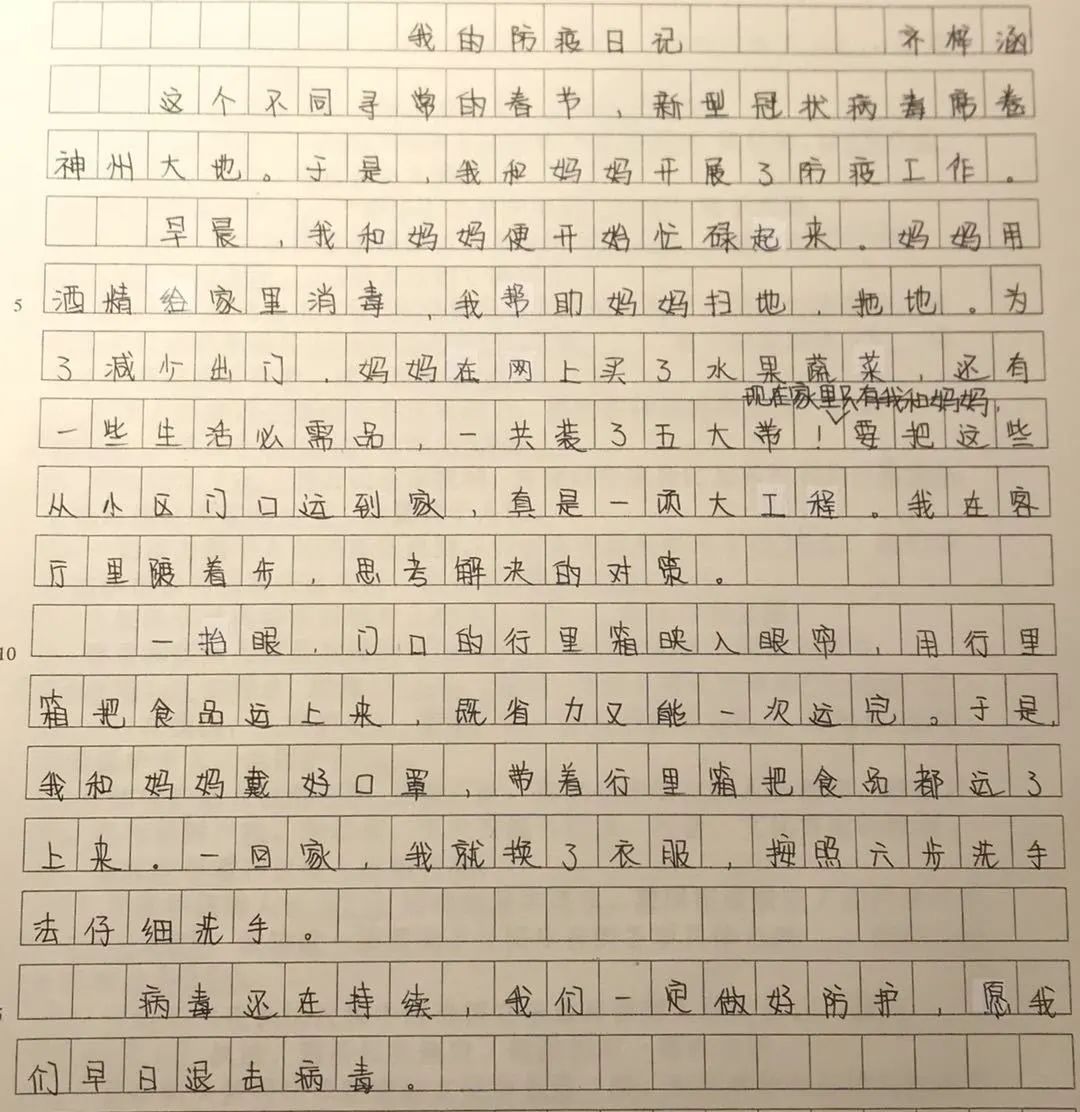 我的防疫日记 齐梓涵
这个不同寻常的春节,新型冠状病毒席卷
神州大地。于是,我和妈妈开展了防疫工作。
早晨,我和妈妈便开始忙碌起来。妈妈用
5 酒精给家里消毒,我帮助妈妈扫地,拖地。为
了减少出门,妈妈在网上买了水果蔬菜,还有
现在家里只有我和妈妈,
一些生活必需品,一共装了五大带!要把这些
从小区门口运到家,真是一项大工程。我在客
厅里踱着步,思考解决的对策。
10 一抬眼,门口的行里箱映入眼帘,用行里
箱把食品运上来,既省力又能一次运完。于是,
我和妈妈戴好口罩,带着行里箱把食品都运了
上来。一回家,我就换了衣服,按照六步洗手
法仔细洗手。
病毒还在持续,我们一定做好防护,愿我
们早日退去病毒。